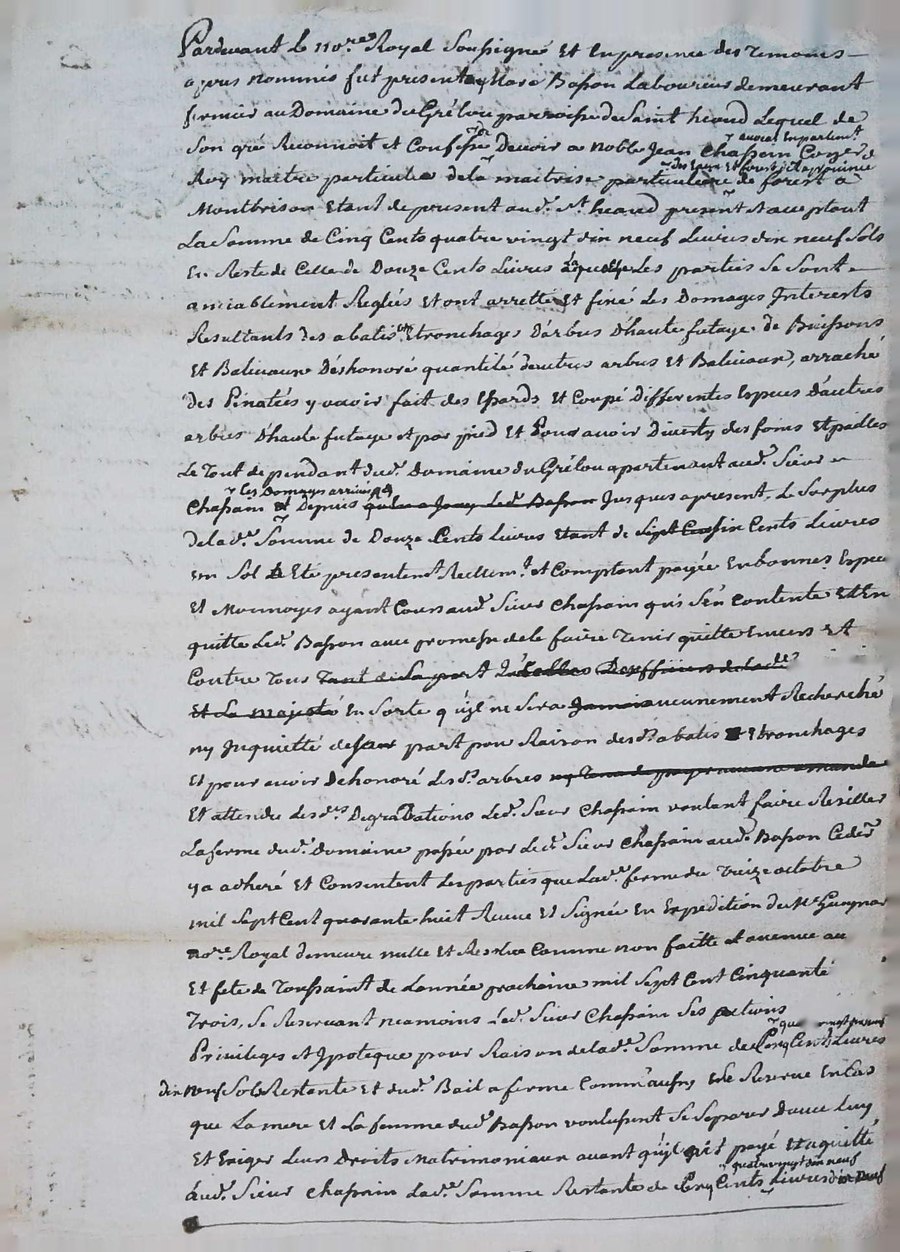 Pardevant Le no.re Royal Soussigné Et En presence des Temoins
apres nommés fut present Basson Laboureur demeurant
fermier au Domaine du Grélou parroisse du Saint heand Lequel de
Son gré Reconnoit et Confesse Devoir a noble Jean Chassain
avocat En parlement
Roy maitre particulier dela maitrise particuliere de forest a
des Eaux Et forest
Montbrison Etant de present aud. St. heand present Et acceptant
La Somme de Cinq Cents quatre vingt dix neuf Livres dix neuf Sols
En Reste de Celle de Douze Cents Livres Les parties Se Sont
amiablement Reglés Et ont arretté Et fixé Les Domages Interents
Resultants des abatis Etronchages Darbres D'haute futaye de Buissons
Et Baliveaux Deshonoré quantité dautres arbres Et Baliveaux, arraché
des Pinatées y avoir fait des Essards Et Coupé Differentes Especes D'autres
arbres D'haute futaye et par pied Et Pour avoir Diverty des foins Et pailles
Le Tout dependant dud. Domaine du Grélou apartenant aud. Sieur
Les Domages arrivés
Chassain Depuis Jusques apresent, Le Surplus
delad.e Somme de Douze Cents Livres Cents Livres
Sol Eté presentem.t Reellem.t et Comptant payée En bonnes Especes
Et Monnoyes ayant Cours aud. Sieur Chassain qui S'en Contente Et En
quitte Led. Basson avec promesse dele faire Tenir quitte Envers Et
Contre Tous Tant de La part
Et Sa majesté En Sorte qu'yl ne Sera aucunement Recherché
ny Inquietté part pour Raison desd.s abatis Etronchages
Et pour avoir Dehonoré Lesd.s arbres
Et attendu Lesd.es Degradations Led. Sieur Chassain voulant faire Resilier
La ferme dud. Domaine passée par Led. Sieur Chassain aud. Basson
y a adheré Et Consentent Les parties que Lad.e ferme du Treize octobre
mil Sept Cent quarante huit Recue Et Signée En Expedition du Me
no.re Royal demeure nulle Et Comme non faitte et avenue au
Et fete de Toussaint de Lannée prochaine mil Sept Cent Cinquante
Trois, Se Reservant neamoins Led. Sieur Chassain Ses actions
Privileges et Ipoteque pour Raison delad.e Somme de Cinq Cents Livres
dix neuf Sols Restante Et dud. Bail a ferme Comm'aussy Se Reserve En Cas
que La mere Et La femme dud. Basson voulussent Se Separer D'avec Luy
Et Exiger Leurs Droits Matrimoniaux avant qu'yl payé Et aquitté
quatre vingt dix neuf
Aud. Sieur Chassain Lad.e Somme Restante de Cinq Cents Livres dix neuf